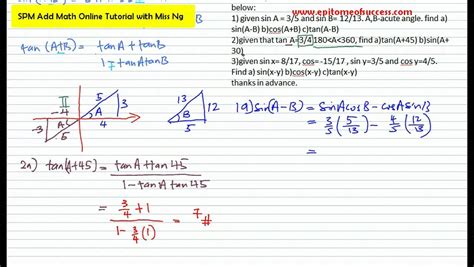 SPM Add Math Online Tutorial with Miss Ng
www.epitomeofsuccess.com
below:
1) given sin A = 3/5 and sin B= 12/13. A,B-acute angle. find a)
sin(A-B) b)cos(A+B) c)tan(A-B)
2)given that tan A=3/4,180<A<360, find a)tan(A+45) b)sin(A+
30)
3)given sinx= 8/17, cosx= -15/17 , sin y=3/5 and cos y=4/5.
Find a) sin(x-y) b)cos(x-y) c)tan(x-y)
thanks in advance.
tan (A±B) = tanA ± tanB
1∓tanAtanB
π
-4
5
3
A
-3
A
4
5
13
12
B
5
1a) sin(A-B) = sinAcosB - cosAsinB
= 3/5 (5/13) - 4/5 (12/13)
=
2a) tan(A+45) = tanA + tan45
1 - tanA tan45
= 3/4 + 1
1 - 3/4 (1)
= 7 #